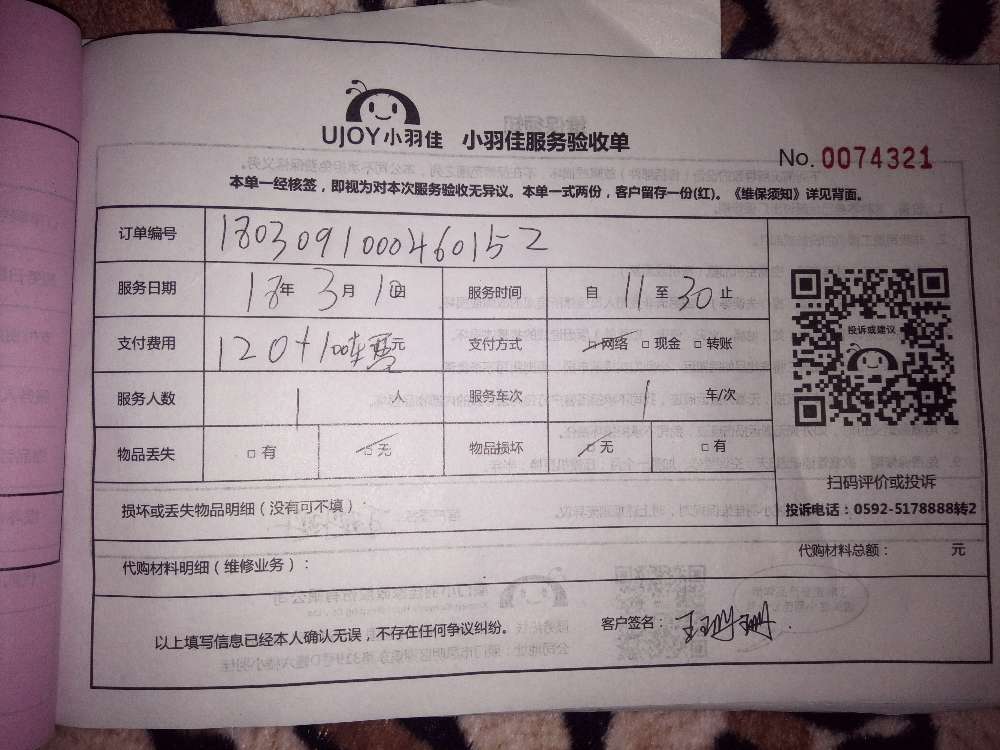 UJOY小羽佳 小羽佳服务验收单
No. 0074321
本单一经核签，即视为对本次服务验收无异议。本单一式两份，客户留存一份(红)。《维保须知》详见背面。
订单编号 1803091000460152
服务日期 18年 3月 10日 服务时间 自 11 至 30 止
支付费用 120+100车费元 支付方式 ☑网络 □现金 □转账
投诉或建议
服务人数 1 人 服务车次 1 车/次
物品丢失 □有 ☑无 物品损坏 ☑无 □有
扫码评价或投诉
投诉电话：0592-5178888转2
损坏或丢失物品明细（没有可不填）：
代购材料总额： 元
代购材料明细（维修业务）：
以上填写信息已经本人确认无误，不存在任何争议纠纷。
客户签名：王珊珊